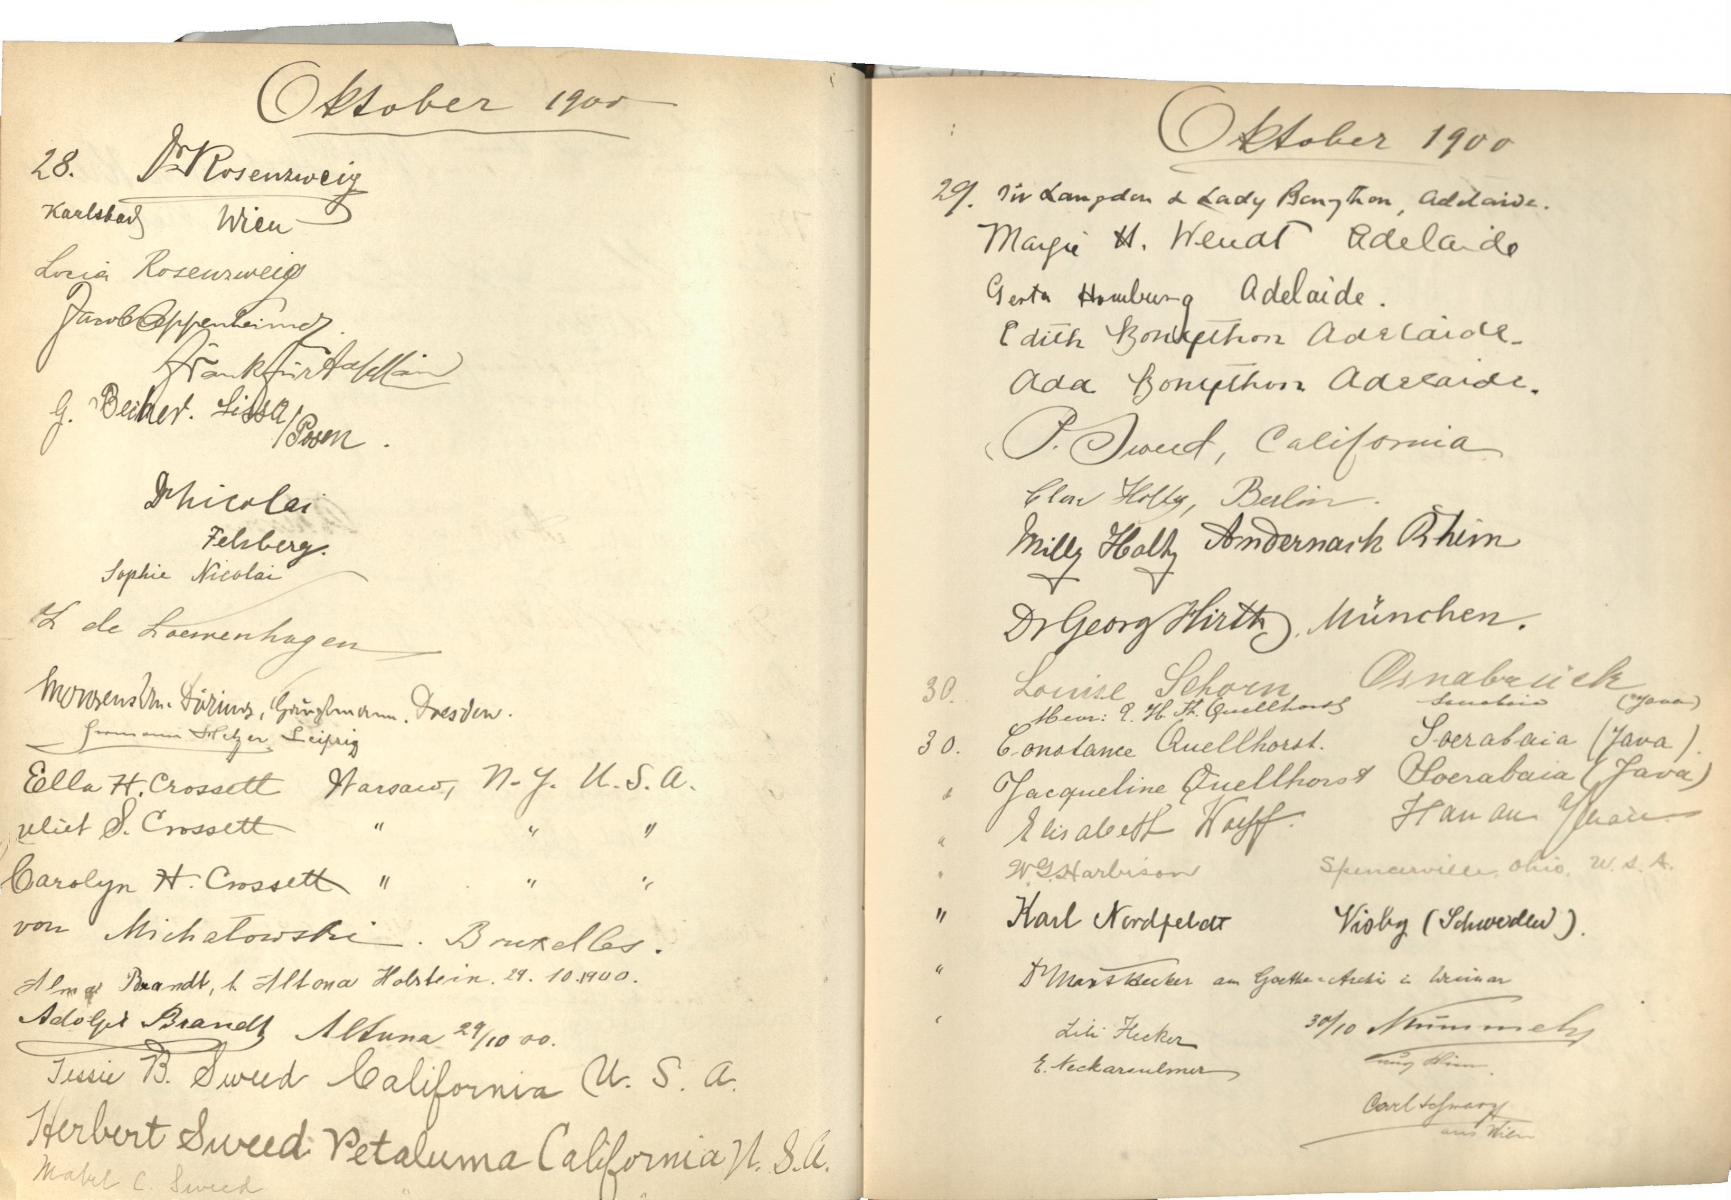 Oktober 1900
28. Dr Rosenzweig
Karlsbad Wien
Rosenzweig
Jacob Oppenheimer
Frankfurt a/Main
G. Becher. Lissa/Posen.
Dr Nicolai
Felsberg.
Sophie Nicolai
L de Loewenhagen
Dresden.
Leipzig
Ella H. Crossett Warsaw, N. Y. U. S. A.
S. Crossett " " "
Carolyn H. Crossett " " "
von Michalowski. Bruxelles.
Alma Brandt, Altona Holstein. 29. 10. 1900.
Adolph Brandt Altona 29/10 00.
Jessie B. Sweed California U. S. A.
Herbert Sweed Petaluma California U. S. A.
Mabel C. Sweed
Oktober 1900
29. Sir Langdon & Lady Bonython, Adelaide.
H. Wendt Adelaide
Gerta Homburg Adelaide.
Edith Bonython Adelaide.
Ada Bonython Adelaide.
P. Sweed, California
Berlin.
Milly Holtz Andernach Rhein
Dr Georg Hirth, München.
30. Louise Schorn, Osnabrück
Quellhorst (Java)
30. Constance Quellhorst. Soerabaia (Java).
" Jacqueline Quellhorst Soerabaia (Java)
" Elisabeth Hanau
" W. G. Harbison Spencerville, Ohio, U. S. A.
" Karl Nordfeldt Visby (Schweden).
" Dr Max Hecker am Goethe-Archiv in Weimar
Lili Hecker 30/10
E. Neckarsulmer
Carl Schwarz
aus Wien